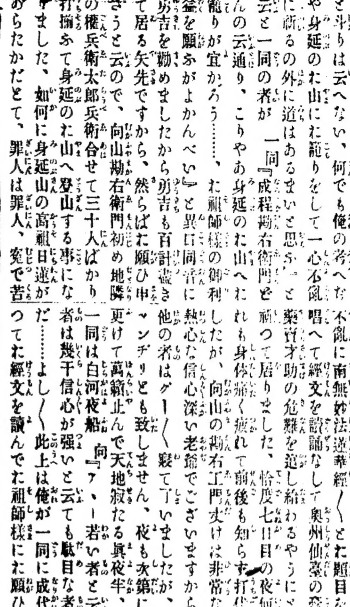 と斗りは云へない、何でも俺の考へだ
や身延のお山にお籠りをして一心不亂
に祈るの外に道はあるまいと思ふ』と
云と一同の者が　一同『成程勘右衛門ど
んの云通り、こりやあ身延のお山へお
籠りが宜かろう……、お祖師様の御利
益を願ふがよかんべい』と異口同音に
勇吉を勸めましたから勇吉も百計盡き
て居る矢先ですから、然らばお願ひ申
さうと云ので、向山勘右衛門初め地隣
の權兵衛太郎兵衛合せて三十人ばかり
打揃ふて身延のお山へ登山する事にな
ました、如何に身延山の高祖日蓮が
あらたかだとて、罪人は罪人、寃で苦
不亂に南無妙法蓮華經〳〵とお題目を
唱へて經文を讀誦なして奥州仙臺の齋
藥賣才助の危難を遁し給わるやうにと
祈つて居りました、恰度七日目の夜何
れも身体痛く疲れて前後も知らず打伏
したが、向山の勘右工門丈けは非常な
熱心な信心深い老爺でございますから
他の者はグー〳〵寢て了いましたが、
マンヂリとも致しません、夜も次第に
更けて萬籟止んで天地寂たる眞夜半、
一同は白河夜船　向『アヽー若い者と云
者は幾干信心が强いと云ても駄目な者
だ……よし〳〵此上は俺が一同に成代
つてお經文を讀んでお祖師様にお願ひ